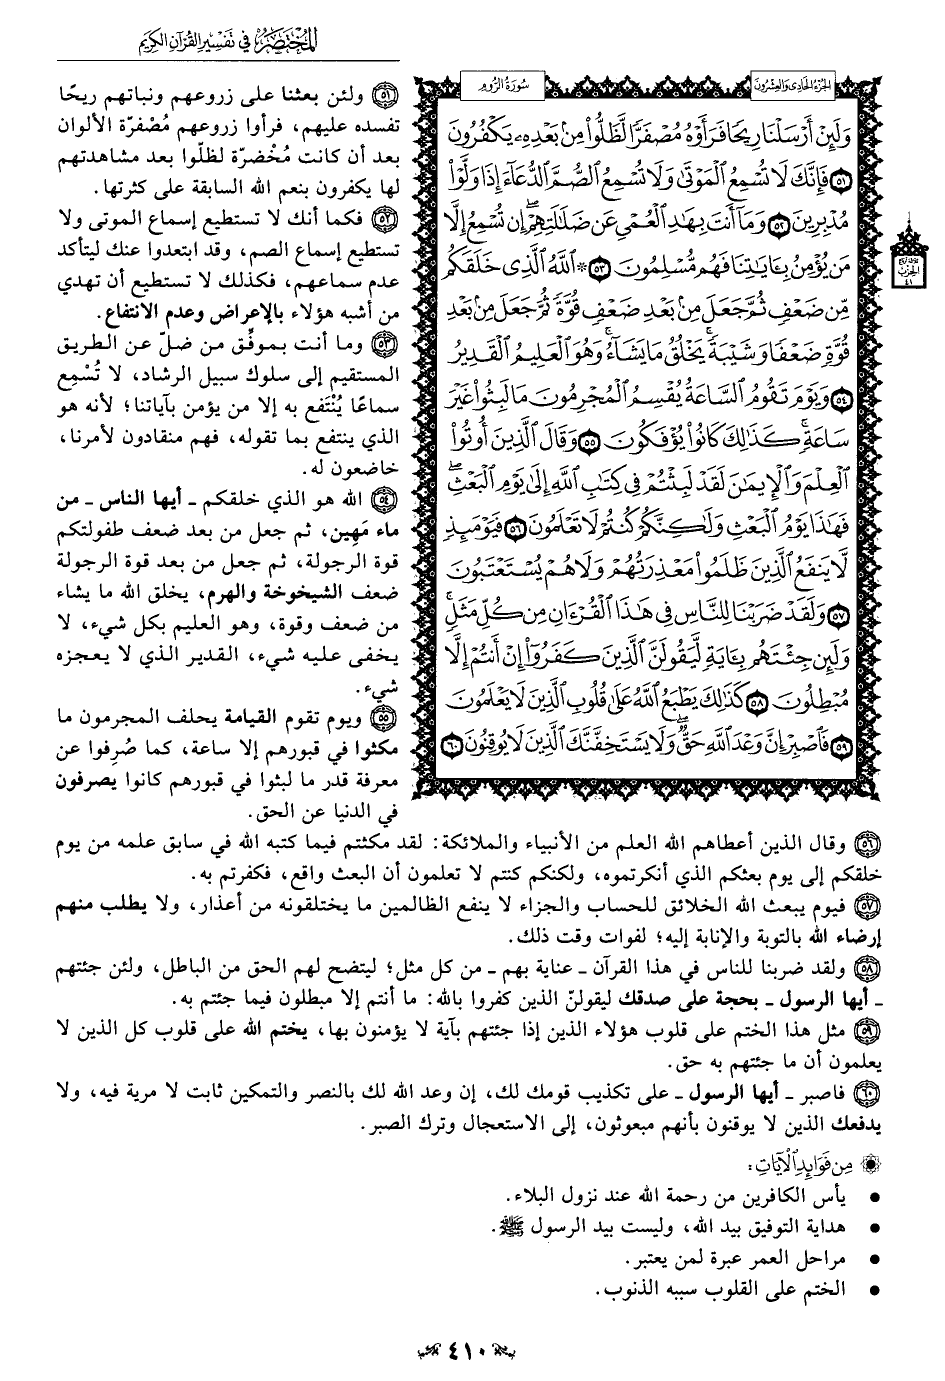 المختصر في تفسير القرآن الكريم
الجزء الحادي والعشرون
سورة الروم
وَلَئِنْ أَرْسَلْنَا رِيحًا فَرَأَوْهُ مُصْفَرًّا لَّظَلُّوا۟ مِنۢ بَعْدِهِۦ يَكْفُرُونَ
٥١ فَإِنَّكَ لَا تُسْمِعُ ٱلْمَوْتَىٰ وَلَا تُسْمِعُ ٱلصُّمَّ ٱلدُّعَآءَ إِذَا وَلَّوْا۟
مُدْبِرِينَ ٥٢ وَمَآ أَنتَ بِهَٰدِ ٱلْعُمْىِ عَن ضَلَٰلَتِهِمْ ۖ إِن تُسْمِعُ إِلَّا
مَن يُؤْمِنُ بِـَٔايَٰتِنَا فَهُم مُّسْلِمُونَ ٥٣ * ٱللَّهُ ٱلَّذِى خَلَقَكُم
مِّن ضَعْفٍ ثُمَّ جَعَلَ مِنۢ بَعْدِ ضَعْفٍ قُوَّةً ثُمَّ جَعَلَ مِنۢ بَعْدِ
قُوَّةٍ ضَعْفًا وَشَيْبَةً ۚ يَخْلُقُ مَا يَشَآءُ ۖ وَهُوَ ٱلْعَلِيمُ ٱلْقَدِيرُ
٥٤ وَيَوْمَ تَقُومُ ٱلسَّاعَةُ يُقْسِمُ ٱلْمُجْرِمُونَ مَا لَبِثُوا۟ غَيْرَ
سَاعَةٍ ۚ كَذَٰلِكَ كَانُوا۟ يُؤْفَكُونَ ٥٥ وَقَالَ ٱلَّذِينَ أُوتُوا۟
ٱلْعِلْمَ وَٱلْإِيمَٰنَ لَقَدْ لَبِثْتُمْ فِى كِتَٰبِ ٱللَّهِ إِلَىٰ يَوْمِ ٱلْبَعْثِ ۖ
فَهَٰذَا يَوْمُ ٱلْبَعْثِ وَلَٰكِنَّكُمْ كُنتُمْ لَا تَعْلَمُونَ ٥٦ فَيَوْمَئِذٍ
لَّا يَنفَعُ ٱلَّذِينَ ظَلَمُوا۟ مَعْذِرَتُهُمْ وَلَا هُمْ يُسْتَعْتَبُونَ
٥٧ وَلَقَدْ ضَرَبْنَا لِلنَّاسِ فِى هَٰذَا ٱلْقُرْءَانِ مِن كُلِّ مَثَلٍ ۚ
وَلَئِن جِئْتَهُم بِـَٔايَةٍ لَّيَقُولَنَّ ٱلَّذِينَ كَفَرُوٓا۟ إِنْ أَنتُمْ إِلَّا
مُبْطِلُونَ ٥٨ كَذَٰلِكَ يَطْبَعُ ٱللَّهُ عَلَىٰ قُلُوبِ ٱلَّذِينَ لَا يَعْلَمُونَ
٥٩ فَٱصْبِرْ إِنَّ وَعْدَ ٱللَّهِ حَقٌّ ۖ وَلَا يَسْتَخِفَّنَّكَ ٱلَّذِينَ لَا يُوقِنُونَ ٦٠
الحزب
٤١
٥١ ولئن بعثنا على زروعهم ونباتهم ريحًا
تفسده عليهم، فرأوا زروعهم مُصْفرّة الألوان
بعد أن كانت مُخْضرّة لظلّوا بعد مشاهدتهم
لها يكفرون بنعم الله السابقة على كثرتها.
٥٢ فكما أنك لا تستطيع إسماع الموتى ولا
تستطيع إسماع الصم، وقد ابتعدوا عنك ليتأكد
عدم سماعهم، فكذلك لا تستطيع أن تهدي
من أشبه هؤلاء بالإعراض وعدم الانتفاع.
٥٣ وما أنت بموفِّق من ضلّ عن الطريق
المستقيم إلى سلوك سبيل الرشاد، لا تُسْمِع
سماعًا يُنْتَفع به إلا من يؤمن بآياتنا؛ لأنه هو
الذي ينتفع بما تقوله، فهم منقادون لأمرنا،
خاضعون له.
٥٤ الله هو الذي خلقكم ـ أيها الناس ـ من
ماء مَهِين، ثم جعل من بعد ضعف طفولتكم
قوة الرجولة، ثم جعل من بعد قوة الرجولة
ضعف الشيخوخة والهرم، يخلق الله ما يشاء
من ضعف وقوة، وهو العليم بكل شيء، لا
يخفى عليه شيء، القدير الذي لا يعجزه
شيء.
٥٥ ويوم تقوم القيامة يحلف المجرمون ما
مكثوا في قبورهم إلا ساعة، كما صُرِفوا عن
معرفة قدر ما لبثوا في قبورهم كانوا يصرفون
في الدنيا عن الحق.
٥٦ وقال الذين أعطاهم الله العلم من الأنبياء والملائكة: لقد مكثتم فيما كتبه الله في سابق علمه من يوم
خلقكم إلى يوم بعثكم الذي أنكرتموه، ولكنكم كنتم لا تعلمون أن البعث واقع، فكفرتم به.
٥٧ فيوم يبعث الله الخلائق للحساب والجزاء لا ينفع الظالمين ما يختلقونه من أعذار، ولا يطلب منهم
إرضاء الله بالتوبة والإنابة إليه؛ لفوات وقت ذلك.
٥٨ ولقد ضربنا للناس في هذا القرآن ـ عناية بهم ـ من كل مثل؛ ليتضح لهم الحق من الباطل، ولئن جئتهم
ـ أيها الرسول ـ بحجة على صدقك ليقولنّ الذين كفروا بالله: ما أنتم إلا مبطلون فيما جئتم به.
٥٩ مثل هذا الختم على قلوب هؤلاء الذين إذا جئتهم بآية لا يؤمنون بها، يختم الله على قلوب كل الذين لا
يعلمون أن ما جئتهم به حق.
٦٠ فاصبر ـ أيها الرسول ـ على تكذيب قومك لك، إن وعد الله لك بالنصر والتمكين ثابت لا مرية فيه، ولا
يدفعك الذين لا يوقنون بأنهم مبعوثون، إلى الاستعجال وترك الصبر.
من فوائد الآيات:
• يأس الكافرين من رحمة الله عند نزول البلاء.
• هداية التوفيق بيد الله، وليست بيد الرسول ﷺ.
• مراحل العمر عبرة لمن يعتبر.
• الختم على القلوب سببه الذنوب.
٤١٠